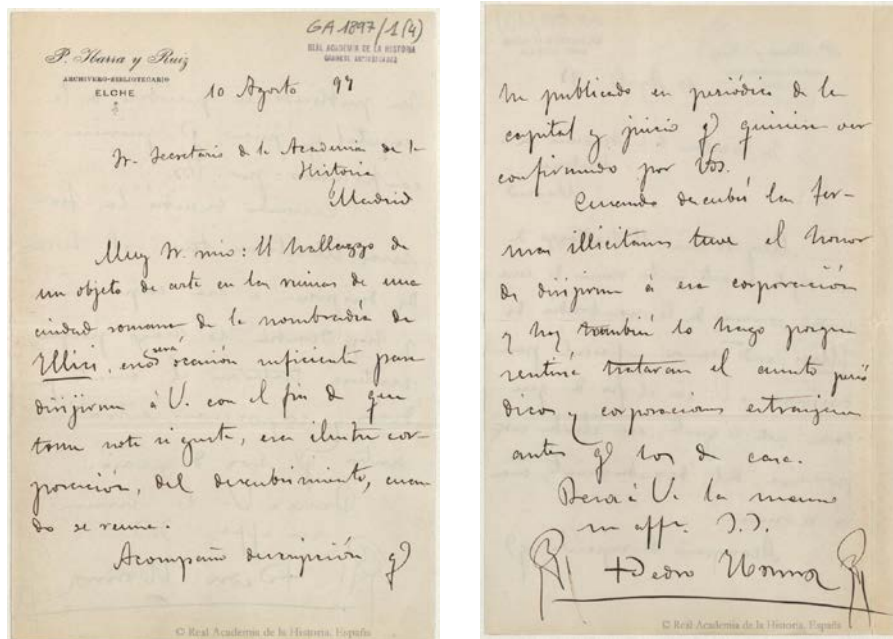 GA 1897/1(4)
REAL ACADEMIA DE LA HISTORIA
GABINETE ANTIGÜEDADES
P. Ibarra y Ruiz
ARCHIVERO-BIBLIOTECARIO
ELCHE
10 Agosto 97
Sr. Secretario de la Academia de la
Historia
Madrid
Muy Sr. mio: El hallazgo de
un objeto de arte en las ruinas de una
ciudad romana de la nombradía de
Illici, será ocasión suficiente para
dirijirme á V. con el fin de que
tome nota si gusta, esa ilustre cor-
poración, del descubrimiento, cuan-
do se reuna.
Acompaño descripción q̄
he publicado en periódico de la
capital y juicio q̄ quisiera ver
confirmado por Vds.
Cuando descubrí las ter-
mas illicitanas tuve el honor
de dirijirme á esa corporación
y hoy también lo hago porque
sentiría trataran el asunto perió
dicos y corporaciones extranjeras
antes q̄ los de casa.
Besa á V. la mano
su affo. S.S.
Pedro Ibarra
© Real Academia de la Historia. España
© Real Academia de la Historia. España